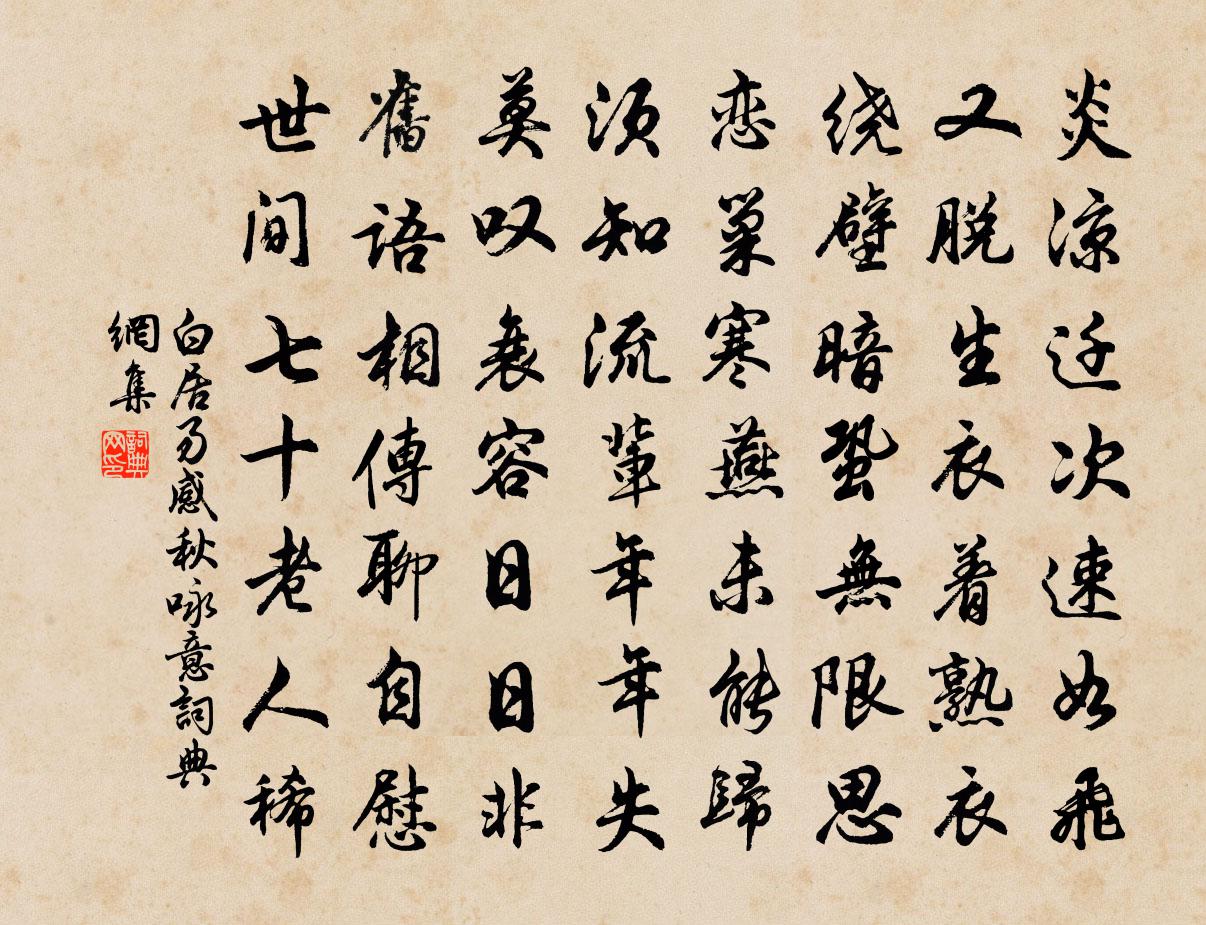 炎凉迁次速如飛
又脱生衣着熟衣
绕壁暗蛩無限思
恋巢寒燕未能歸
须知流輩年年失
莫叹衰容日日非
舊語相傳聊自慰
世间七十老人稀
白居易感秋咏意詞典
網集
詞典
网印